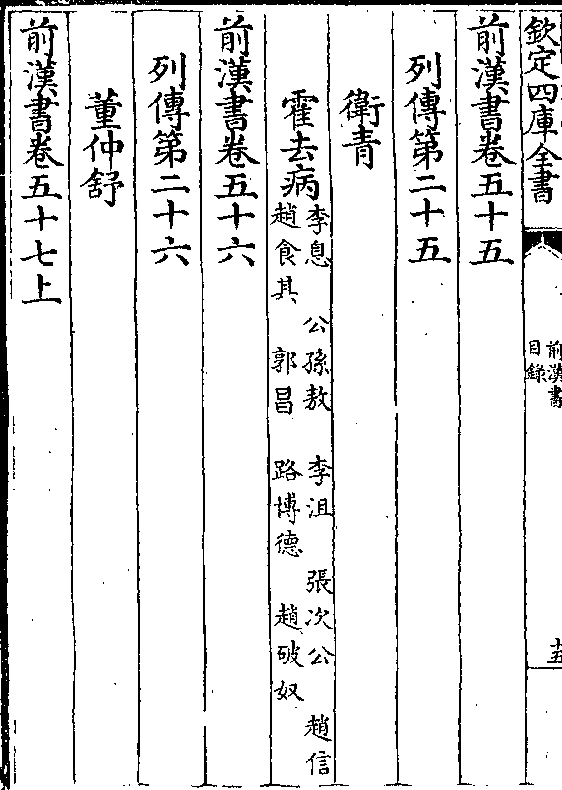 欽定四庫全書
前漢書
目録
十五
前漢書卷五十五
列傳第二十五
衛青
霍去病
李息 公孫敖 李沮 張次公 趙信
趙食其 郭昌 路博德 趙破奴
前漢書卷五十六
列傳第二十六
董仲舒
前漢書卷五十七上